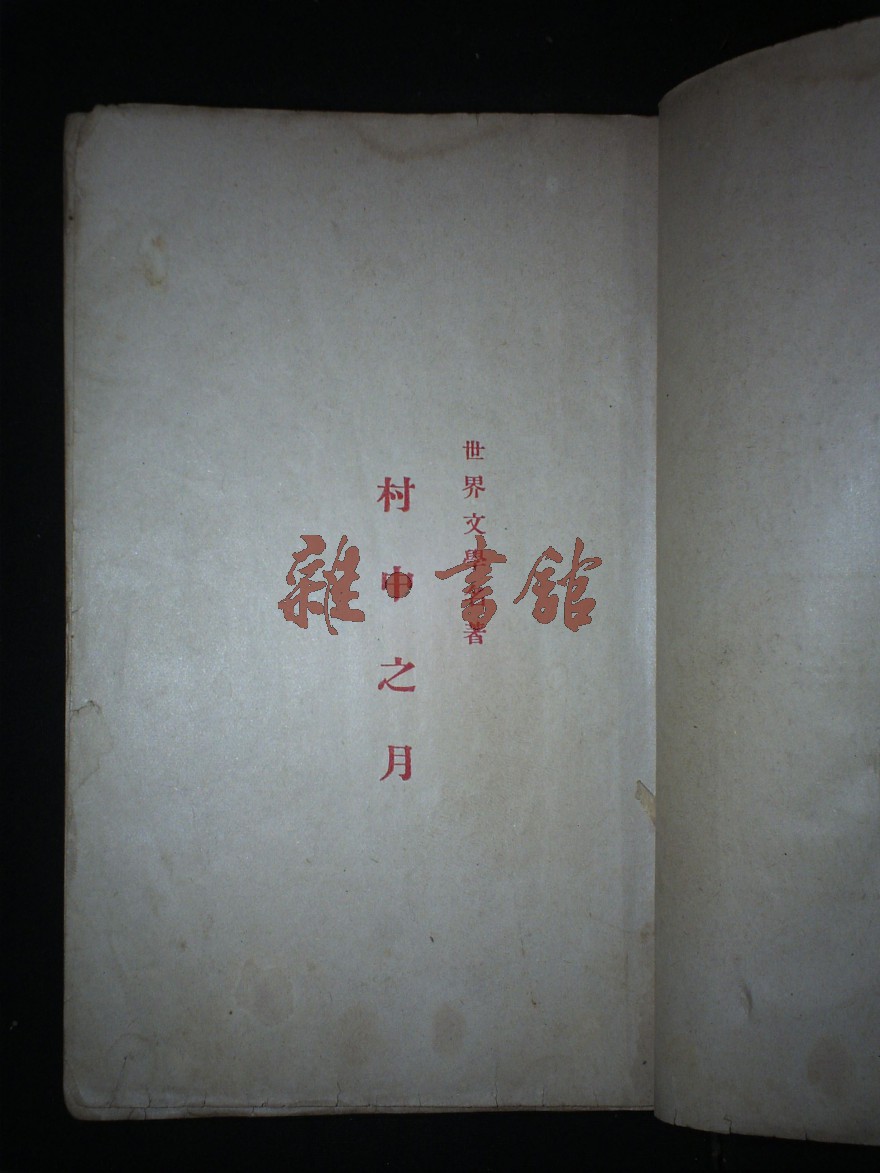 世界文學名著
村中之月
雜·書館